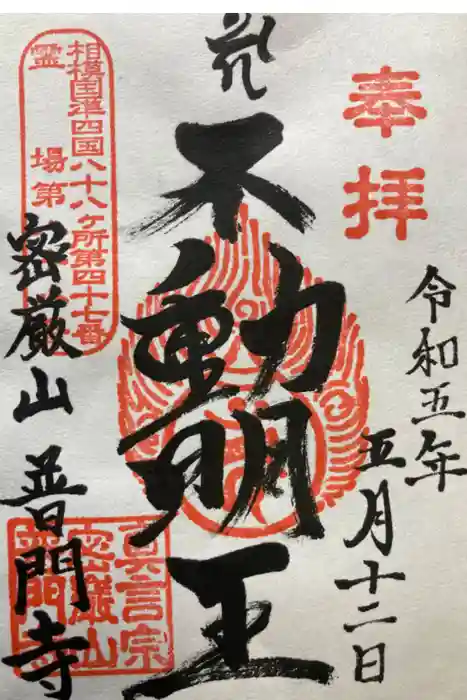 奉拝
令和五年
五月十二日
不動明王
相模国準四国八十八ヶ所第四十七番
霊場第
密厳山
普門寺
真言宗
密巌山
普門寺